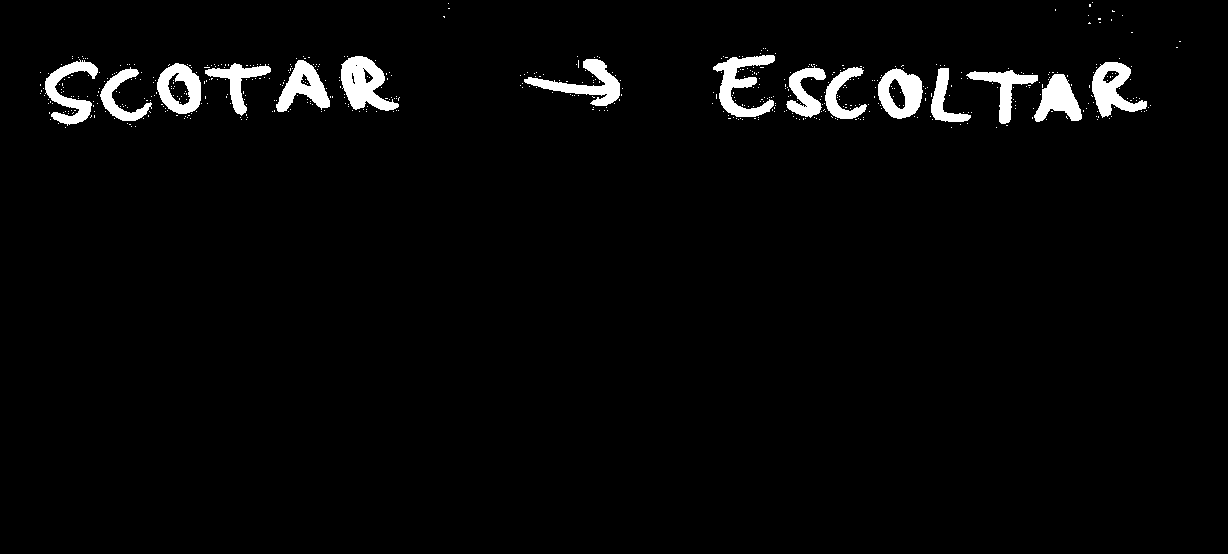 SCOTAR → ESCOLTAR